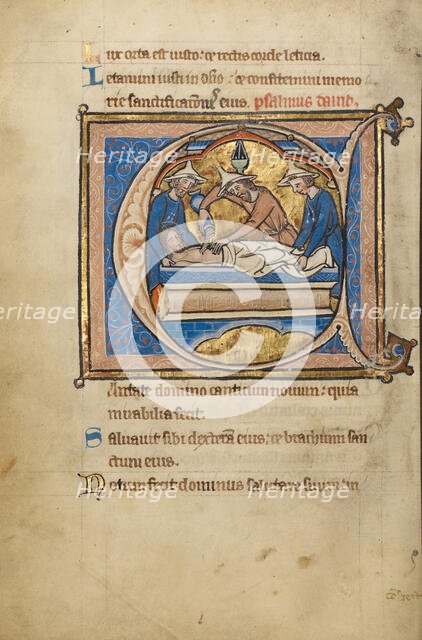 Lux orta est iusto: et rectis corde leticia.
Letamini iusti in dño: et confitemini memo
rie sanctificaconis eius. psalmus david.
Heritage
C
antate domino canticum novum: quia
mirabilia fecit.
Saluavit sibi dextera eius: et brachium san
ctum eius.
Notum fecit dominus salutare suum: in